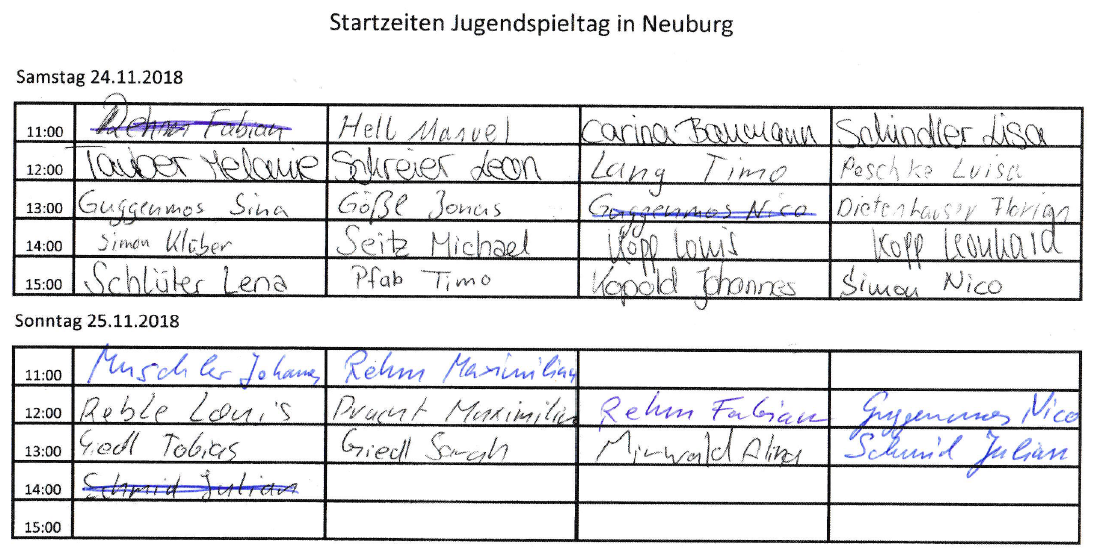 Startzeiten Jugendspieltag in Neuburg
Samstag 24.11.2018
11:00 Rehm Fabian Hell Manuel Carina Baumann Schindler Lisa
12:00 Tauber Melanie Schreier Leon Lang Timo Peschke Luisa
13:00 Guggenmos Sina Gößl Jonas Guggenmos Nico Dietenhauser Florian
14:00 Simon Klüber Seitz Michael Kopp Louis Kopp Leonhard
15:00 Schlüter Lena Pfab Timo Kopold Johannes Simon Nico
Sonntag 25.11.2018
11:00 Muschler Johannes Rehm Maximilian
12:00 Reble Louis Maximilian Rehm Fabian Guggenmos Nico
13:00 Giedl Tobias Giedl Sarah Mirwald Alina Schmid Julian
14:00 Schmid Julian
15:00